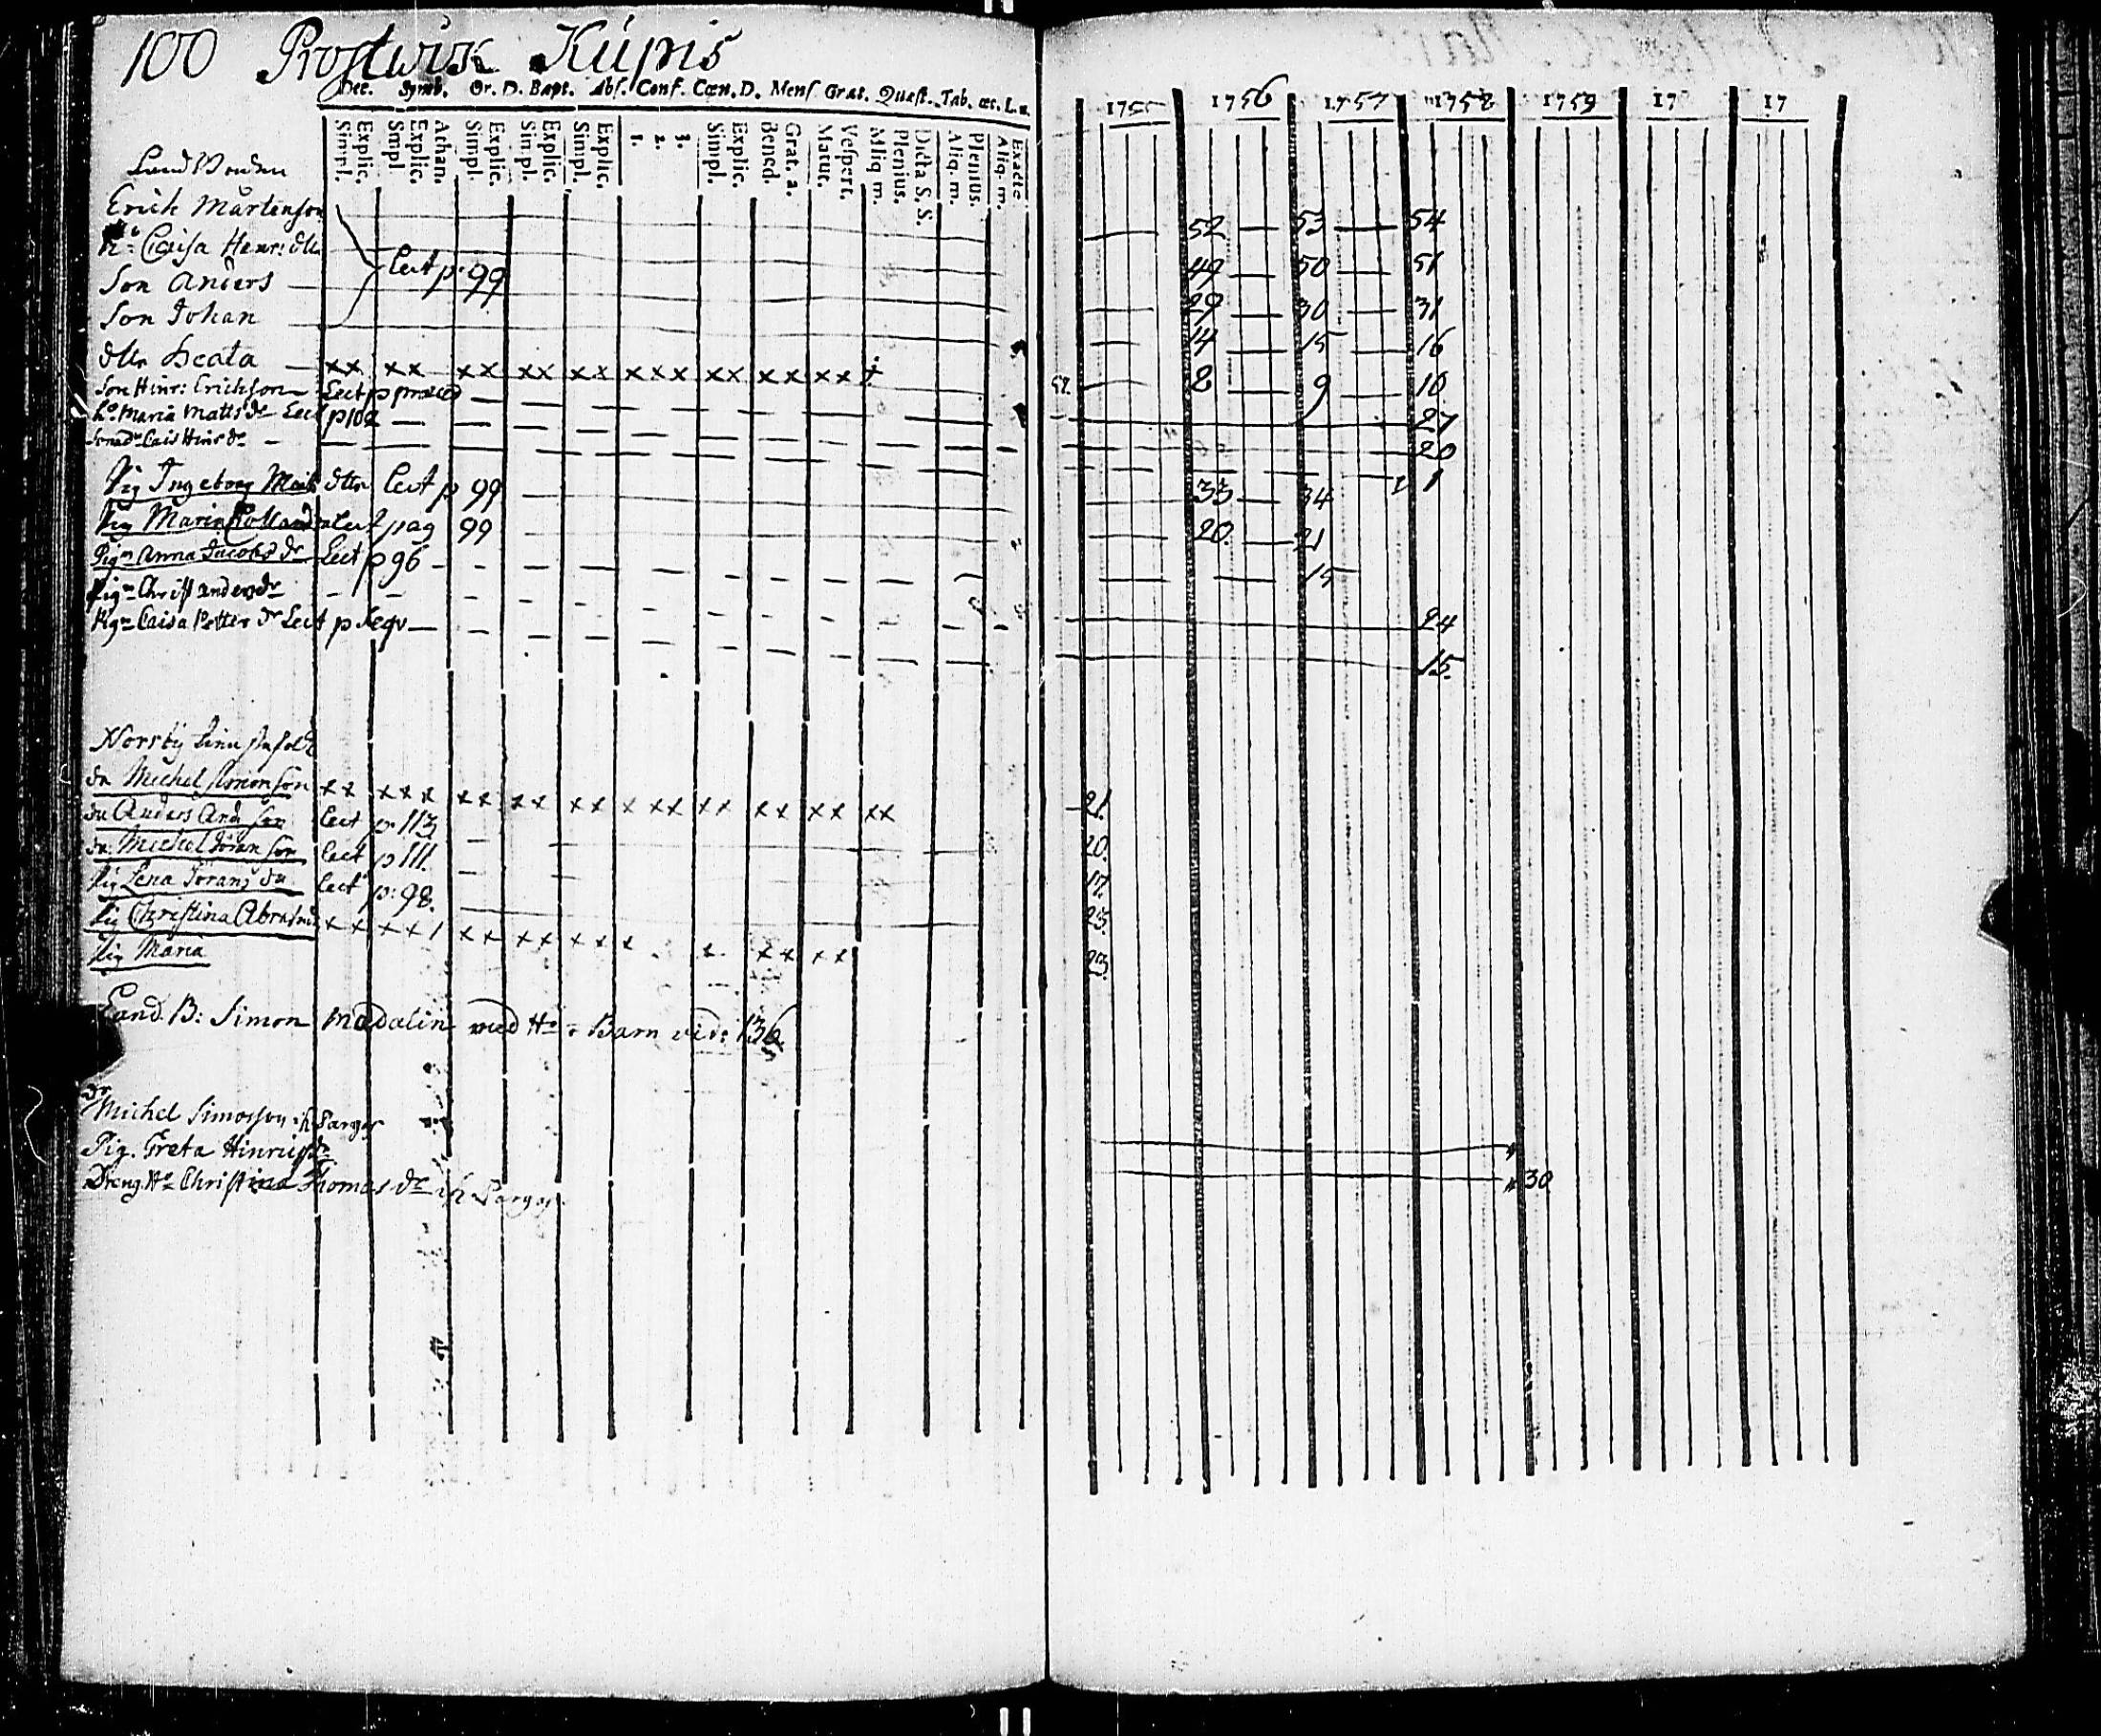 100 Prostwik Küpris
Dec. Symb. Or. D. Bapt. Abs. Conf. Cœn. D. Mens Grat. Quæst. Tab. œc. L. u.
Simpl. Explic. Smpl Explic. Athan. Simpl. Explic. Simpl. Explic. Simpl. Explic. 1. 2. 3. Simpl. Explic. Bened. Grat. a. Matut. Vespert. Aliq m. Plenius. Dicta S. S. Aliq. m. Plenius. Aliq. m. Exacte
1755 1756 1757 1758 1759 17 17
Land Bonden
Erich Mårtenson 52 53 54
h: Caisa Henr: dtr 49 50 51
Son Anders lect p. 99 29 30 31
Son Johan 14 15 16
dtr Beata xx xx xx xx xx xxx xx xx xx 8 9 10
Son Hinr: Erichson Lect p præced 27
h: Maria Matts dr Lect p 102 20
Caisa Hinr dr 1
Pig Ingeborg Mich dttr lect p 99 33 34
Pig Maria lect pag 99 20 21
Pig Anna Jacobs dr Lect p 96 15
Pig Christ anders dr 24
Pig Caisa Petter dr Lect p sequ 15
Norsby
dr Michel Simonson xx xxx xx xx xx x xx xx xx xx xx 21.
dr Anders And son lect p. 113 20.
dr Michel Jöran son lect p 111. 17.
Pig Lena Jorans dr lect p. 98. 23.
Pig Christina Abrahms xx xx xx xx xxx x x xx xx 23.
Pig Maria
Land. B: Simon Madalin med H: o Barn vid: 136
dr
Michel Simosson i Pargas
Pig. Greta Hinrichs dr
Dreng H: Christina Thomas dr i Pargas 30